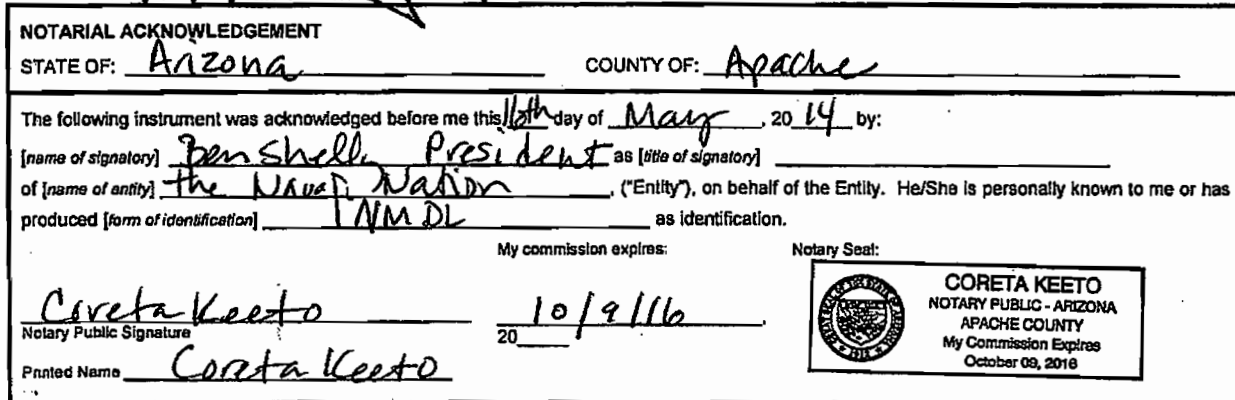 NOTARIAL ACKNOWLEDGEMENT
STATE OF: Arizona COUNTY OF: Apache
The following instrument was acknowledged before me this 16th day of May, 2014 by:
[name of signatory] Ben Shelly President as [title of signatory]
of [name of entity] the Navajo Nation, ("Entity"), on behalf of the Entity. He/She is personally known to me or has
produced [form of identification] NM DL as identification.
My commission expires: Notary Seal:
Coreta Keeto 10/9/16
Notary Public Signature 20
Printed Name Coreta Keeto
CORETA KEETO
NOTARY PUBLIC - ARIZONA
APACHE COUNTY
My Commission Expires
October 09, 2016